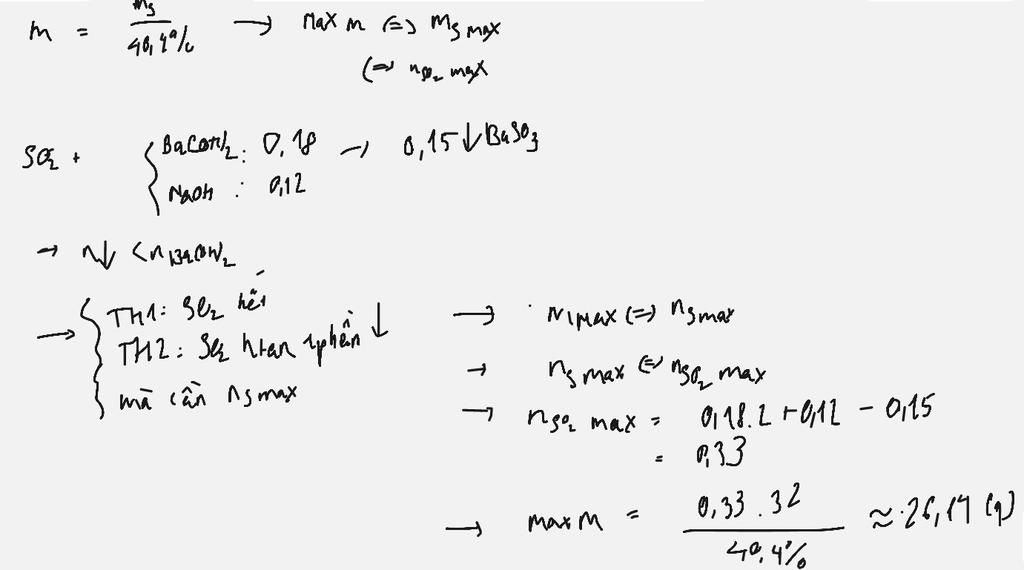 m = mS / 40,4% → Max m ⇔ mS max
⇔ nSO2 max
SO2 + { Ba(OH)2: 0,18 → 0,15 ↓ BaSO3
NaOH : 0,12
→ n↓ < nBa(OH)2
→ { TH1: SO2 hết
TH2: SO2 htan 1 phần ↓
mà cần nS max
→ Max ⇔ nS max
→ nS max ⇔ nSO2 max
→ nSO2 max = 0,18.2 + 0,12 - 0,15
= 0,33
→ max m = 0,33 . 32 / 40,4% ≈ 26,14 (g)